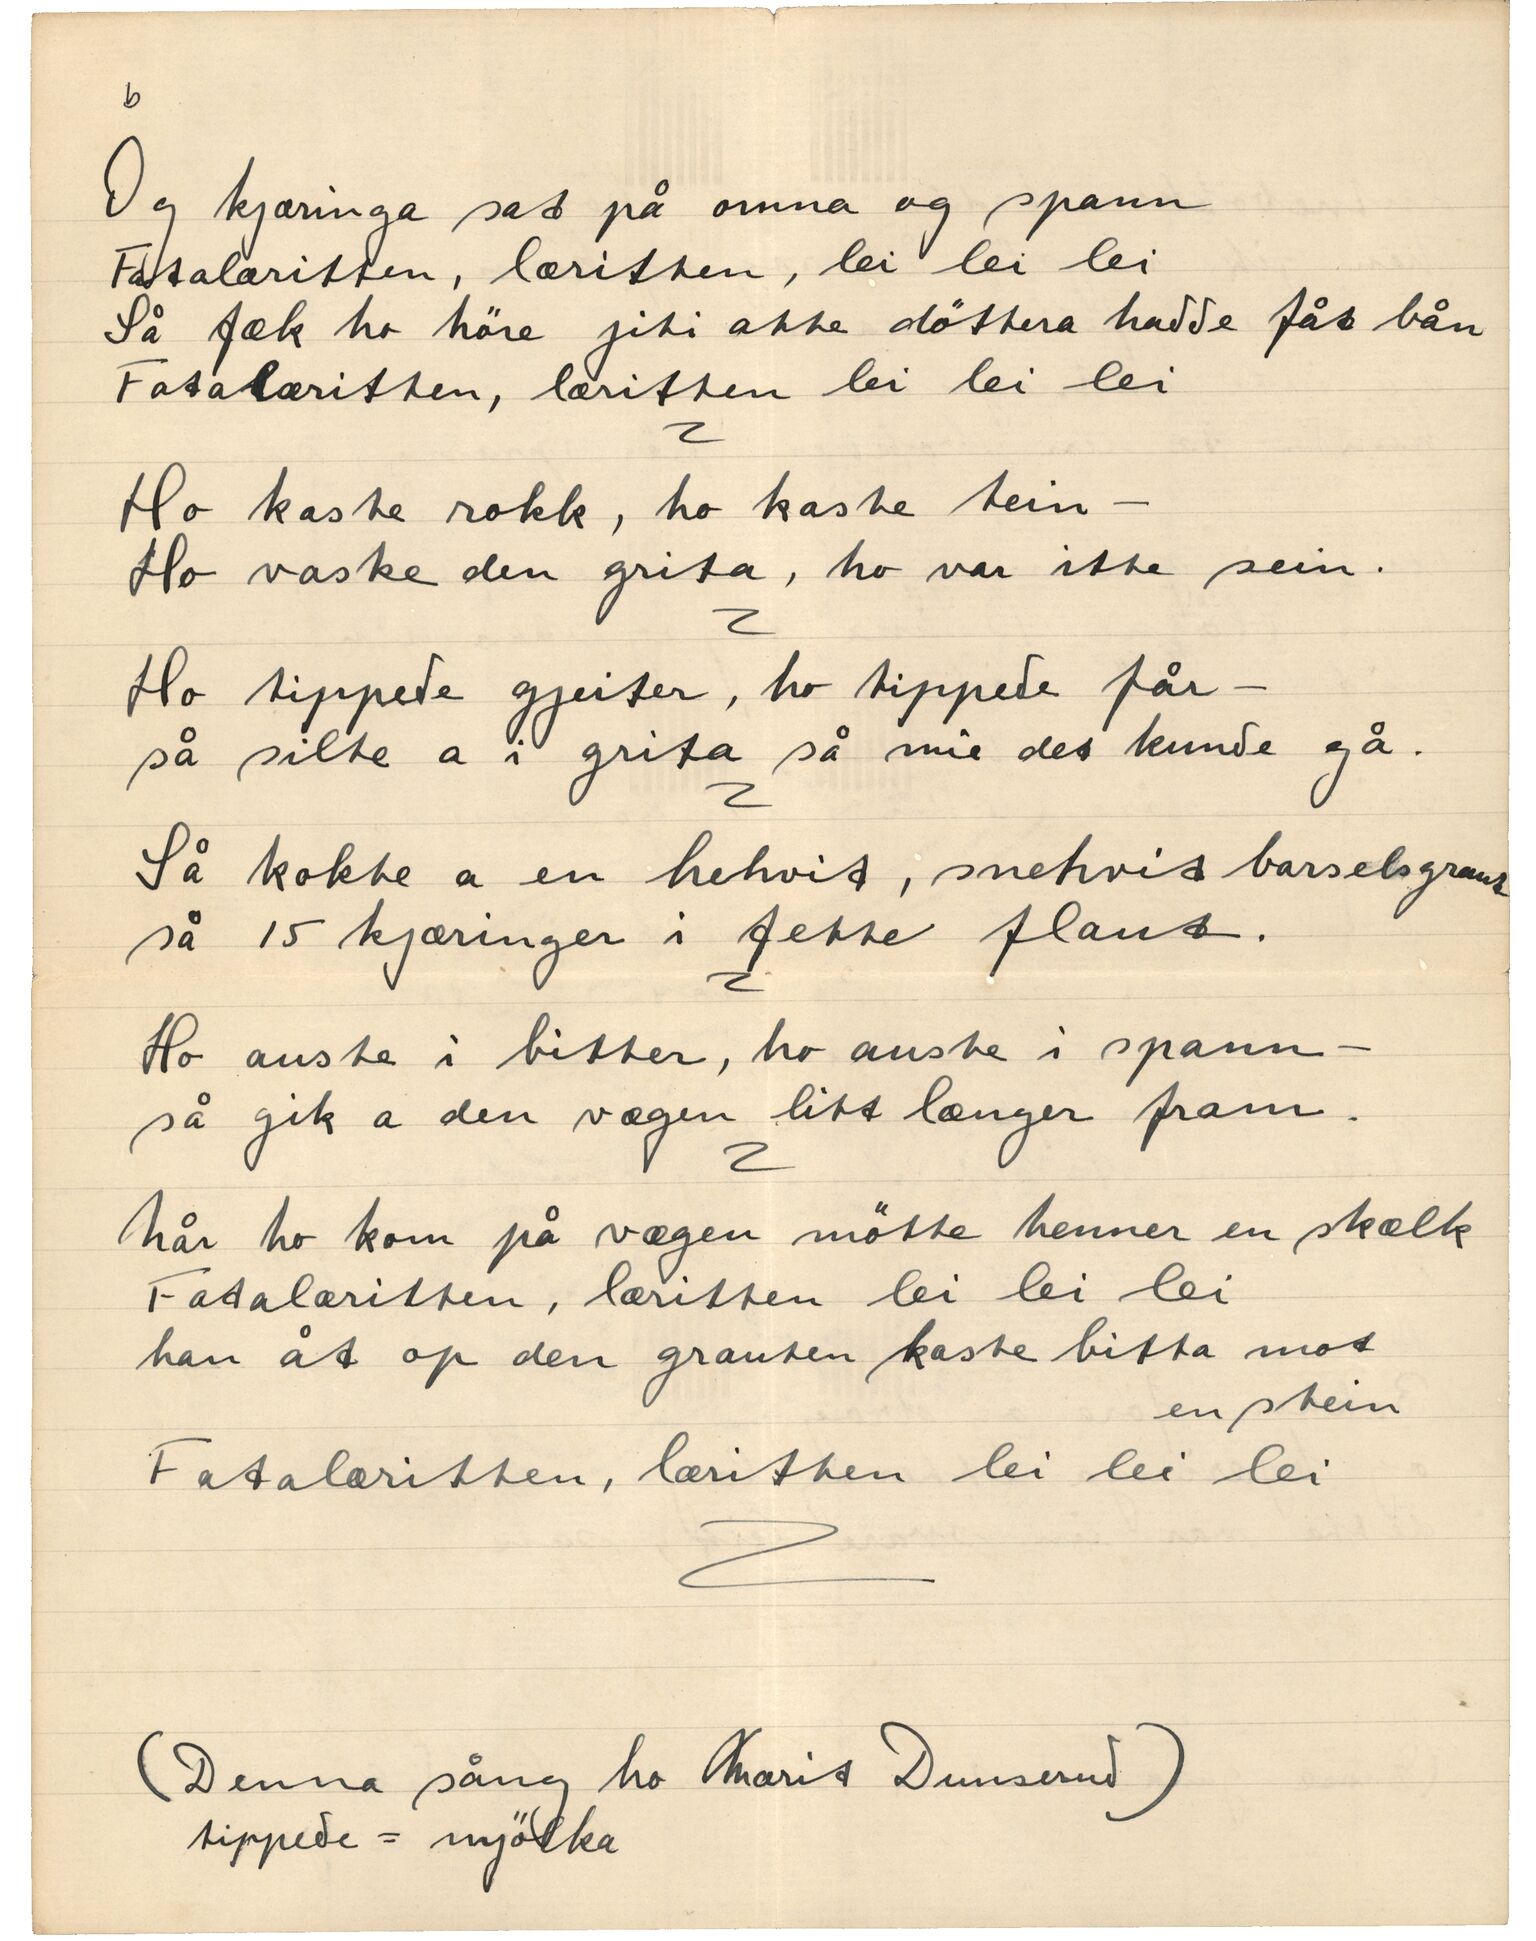 6
Og kjæringa sat på omna og spann
Fatalæritten, læritten, lei lei lei
Så fæk ho höre jiti atte döttera hadde fåt bån
Fatalæritten, læritten lei lei lei
Ho kaste rokk, ho kaste tein –
Ho vaske den grita, ho var itte sein.
Ho tippede gjeiter, ho tippede får –
så silte a i grita så mie det kunde gå.
Så kokte a en helvit, snehvit barselsgraut
så 15 kjæringer i fette flaut.
Ho auste i bitter, ho auste i spann –
så gik a den vægen litt længer fram.
hår ho kom på vægen mötte henner en skælk
Fatalæritten, læritten lei lei lei
han åt op den grauten kaste bitta mot
en stein
Fatalæritten, læritten lei lei lei
(Denna sång ho Marit Dunserud)
tippede = mjölka